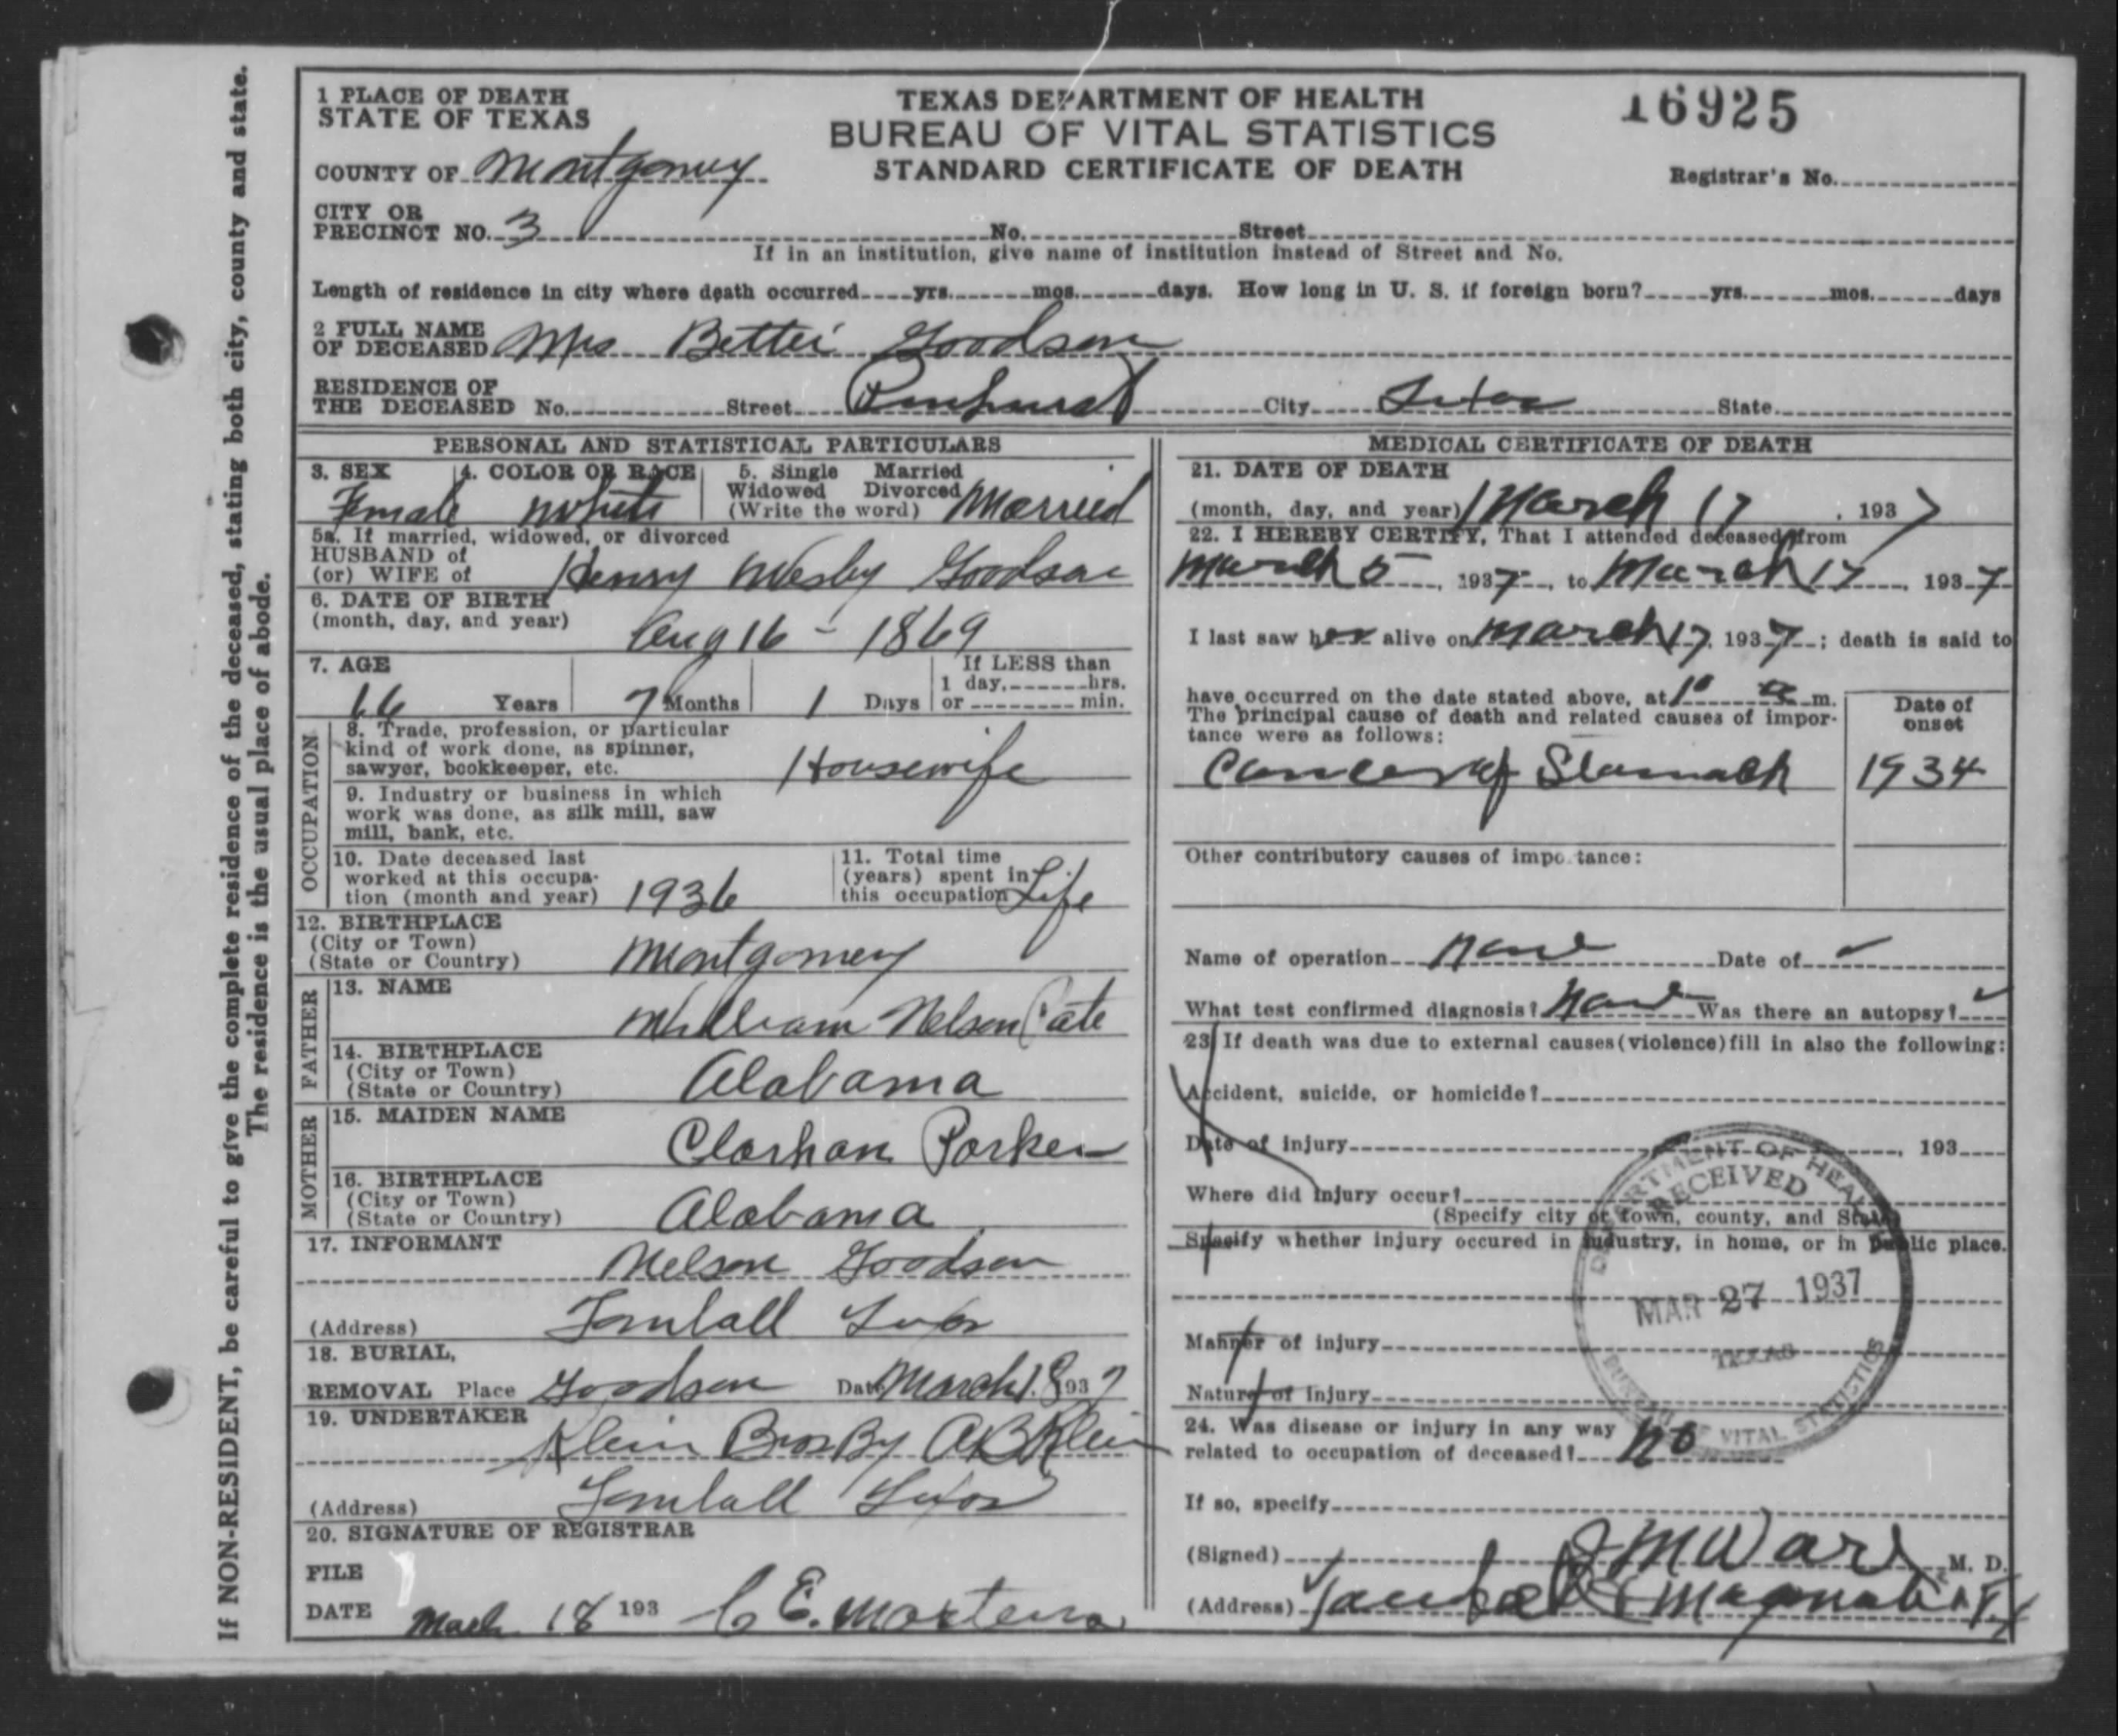 If NON-RESIDENT, be careful to give the complete residence of the deceased, stating both city, county and state.
The residence is the usual place of abode.
1 PLACE OF DEATH
STATE OF TEXAS
TEXAS DEPARTMENT OF HEALTH
BUREAU OF VITAL STATISTICS
STANDARD CERTIFICATE OF DEATH
16925
COUNTY OF Montgomery
Registrar's No.
CITY OR
PRECINCT NO. 3 No. Street
If in an institution, give name of institution instead of Street and No.
Length of residence in city where death occurred yrs. mos. days. How long in U. S. if foreign born? yrs. mos. days
2 FULL NAME
OF DECEASED Mrs Bettie Goodson
RESIDENCE OF
THE DECEASED No. Street Pinehurst City Texas State
PERSONAL AND STATISTICAL PARTICULARS
3. SEX Female
4. COLOR OR RACE White
5. Single Married
Widowed Divorced
(Write the word) Married
5a. If married, widowed, or divorced
HUSBAND of
(or) WIFE of Henry Wesby Goodson
6. DATE OF BIRTH
(month, day, and year) Aug 16 - 1869
7. AGE
66 Years 7 Months 1 Days
If LESS than
1 day, hrs.
or min.
OCCUPATION
8. Trade, profession, or particular
kind of work done, as spinner,
sawyer, bookkeeper, etc. Housewife
9. Industry or business in which
work was done, as silk mill, saw
mill, bank, etc.
10. Date deceased last
worked at this occupa-
tion (month and year) 1936
11. Total time
(years) spent in
this occupation Life
12. BIRTHPLACE
(City or Town)
(State or Country) Montgomery
FATHER
13. NAME
William Nelson Cate
14. BIRTHPLACE
(City or Town)
(State or Country) Alabama
MOTHER
15. MAIDEN NAME
Clarhan Parker
16. BIRTHPLACE
(City or Town)
(State or Country) Alabama
17. INFORMANT
Nelson Goodson
(Address) Tomball Texas
18. BURIAL,
REMOVAL Place Goodson Date March 18 1937
19. UNDERTAKER
Klein Bros By A B Klein
(Address) Tomball Texas
20. SIGNATURE OF REGISTRAR
FILE
DATE Mach 18 193 C E. Martens
MEDICAL CERTIFICATE OF DEATH
21. DATE OF DEATH
(month, day, and year) March 17, 1937
22. I HEREBY CERTIFY, That I attended deceased from
March 5, 1937, to March 17, 1937
I last saw her alive on March 17, 1937; death is said to
have occurred on the date stated above, at 10 a m.
The principal cause of death and related causes of impor-
tance were as follows:
Date of
onset
Cancer of Stomach 1934
Other contributory causes of importance:
Name of operation None Date of ✓
What test confirmed diagnosis? None Was there an autopsy? ✓
23. If death was due to external causes (violence) fill in also the following:
Accident, suicide, or homicide?
Date of injury , 193
Where did injury occur?
(Specify city or town, county, and State)
Specify whether injury occured in industry, in home, or in public place.
Manner of injury
Nature of injury
DEPARTMENT OF HEALTH
RECEIVED
MAR 27 1937
TEXAS
BUREAU OF VITAL STATISTICS
24. Was disease or injury in any way
related to occupation of deceased? No
If so, specify
(Signed) J M Ware M. D.
(Address) & Magnolia Tex